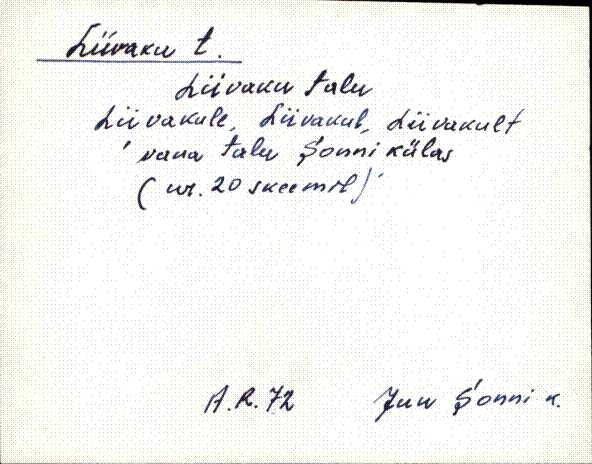 Liivaku t.
Liivaku talu
Liivakule, Liivakul, Liivakult
vana talu Sʹonni külas
(nr. 20 skeemil)
A.R. 72 Juu Sʹonni k.